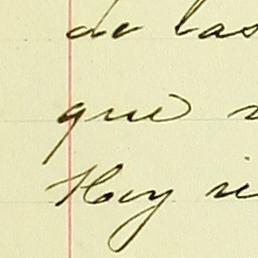 de las
que
Hoy